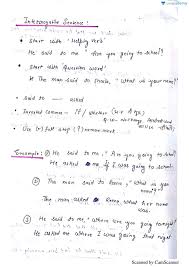 Interrogative Sentence :
• Start with "helping verb"
He said to me, "Are you going to school?"
• Start with Question word
The man said to Sheela, "What is your name?"
• Said to → asked
• Inverted comma → If / whether
• Use (.) full stop (?) remove
Example: ① He said to me, "Are you going to school?"
He asked me if I was going to school.
② The man said to "What is your name?"
The man asked what name was.
③ He said to me, "where are you going tonight?"
He asked me where I was going that night
Scanned by CamScanner